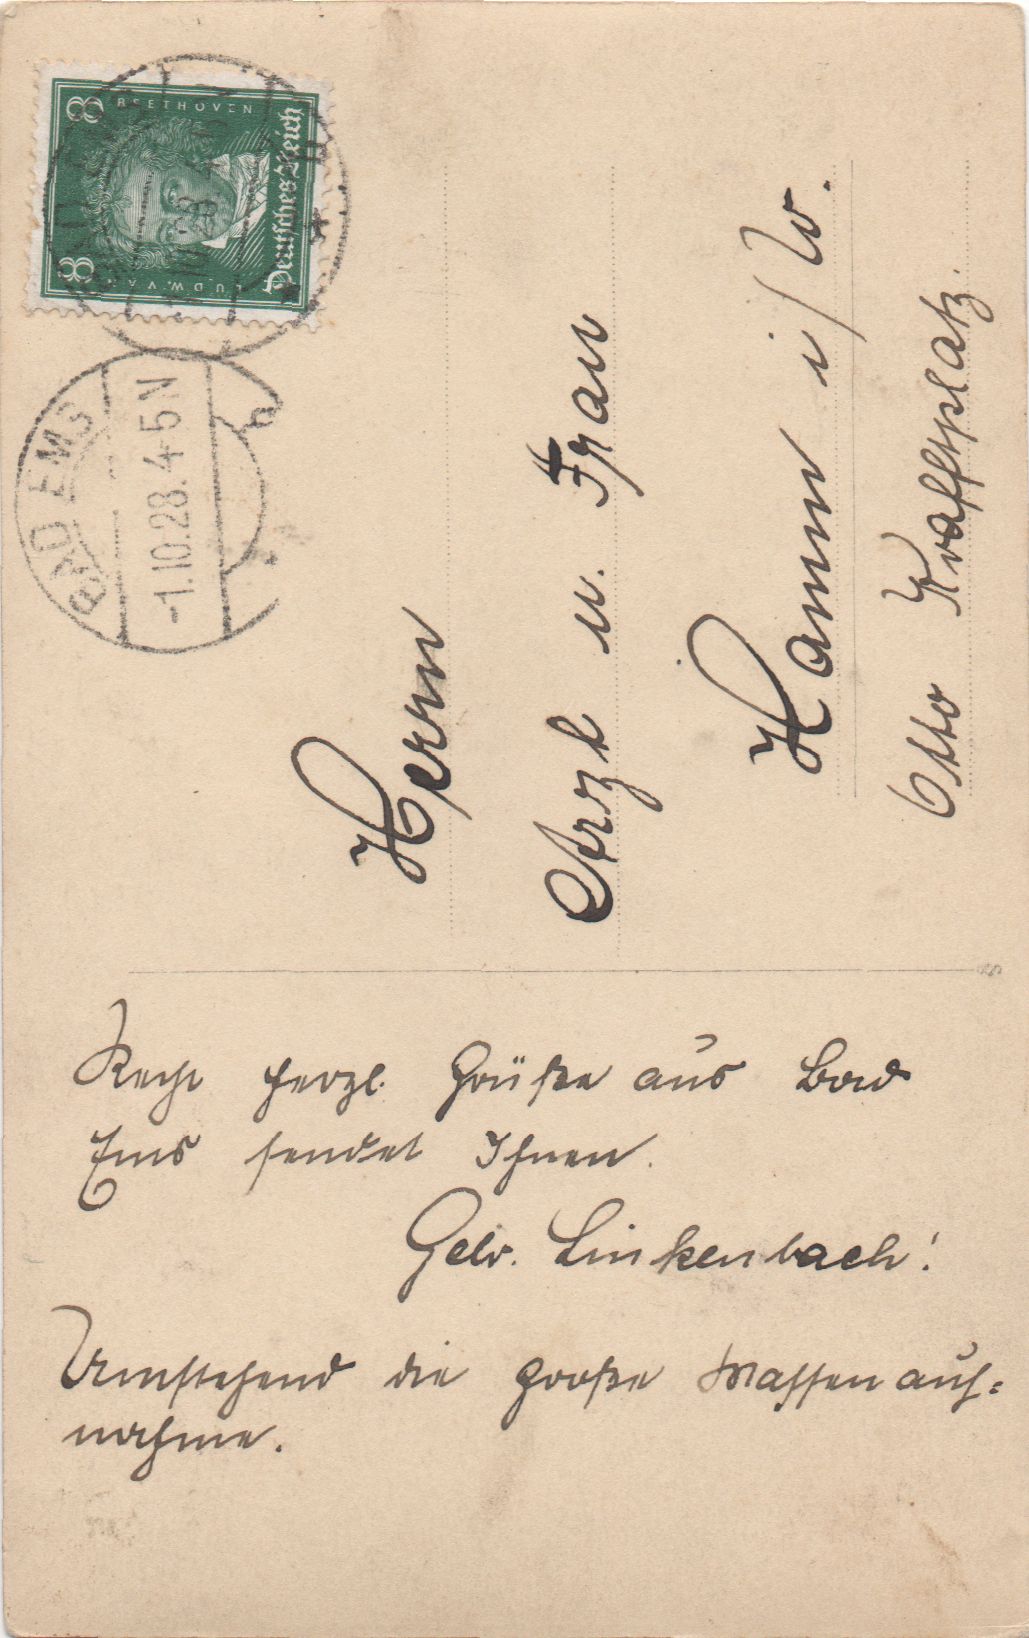 8 BEETHOVEN
8 LUDW. VAN
Deutsches Reich
BAD EMS
-1.10.28.4-5N
b
Herrn
Arzt u. Frau
Hamm i/W.
Otto Kraftplatz.
Recht herzl. Grüße aus Bad
Ems sendet Ihnen.
Gebr. Linkenbach!
Umstehend die große Massenauf=
nahme.